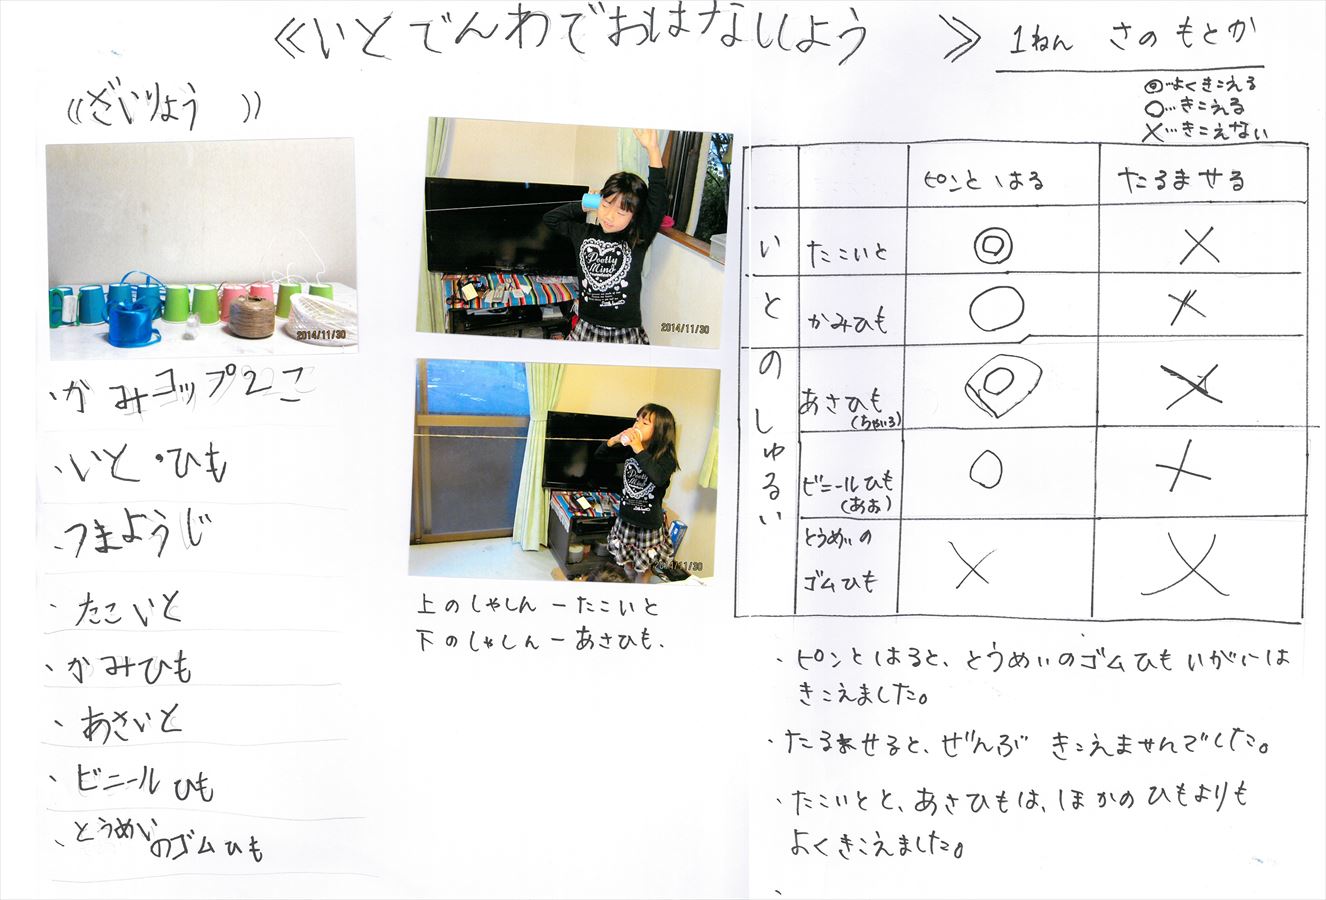 ≪いとでんわでおはなししよう　≫
1ねん　さの もとか
≪ざいりょう　≫
2014/11/30
・かみコップ2こ
・いと・ひも
・つまようじ
・たこいと
・かみひも
・あさいと
・ビニールひも
・とうめいのゴムひも
2014/11/30
Pretty
Mind
2014/11/30
上のしゃしんーたこいと
下のしゃしんーあさひも.
◎…よくきこえる
○…きこえる
×…きこえない
ピンとはる　たるませる
いとのしゅるい
たこいと　◎　×
かみひも　○　×
あさひも(ちゃいろ)　◎　×
ビニールひも(あお)　○　×
とうめいのゴムひも　×　×
・ピンとはると、とうめいのゴムひもいがいは
きこえました。
・たるませると、ぜんぶ きこえませんでした。
・たこいとと、あさひもは、ほかのひもよりも
よくきこえました。